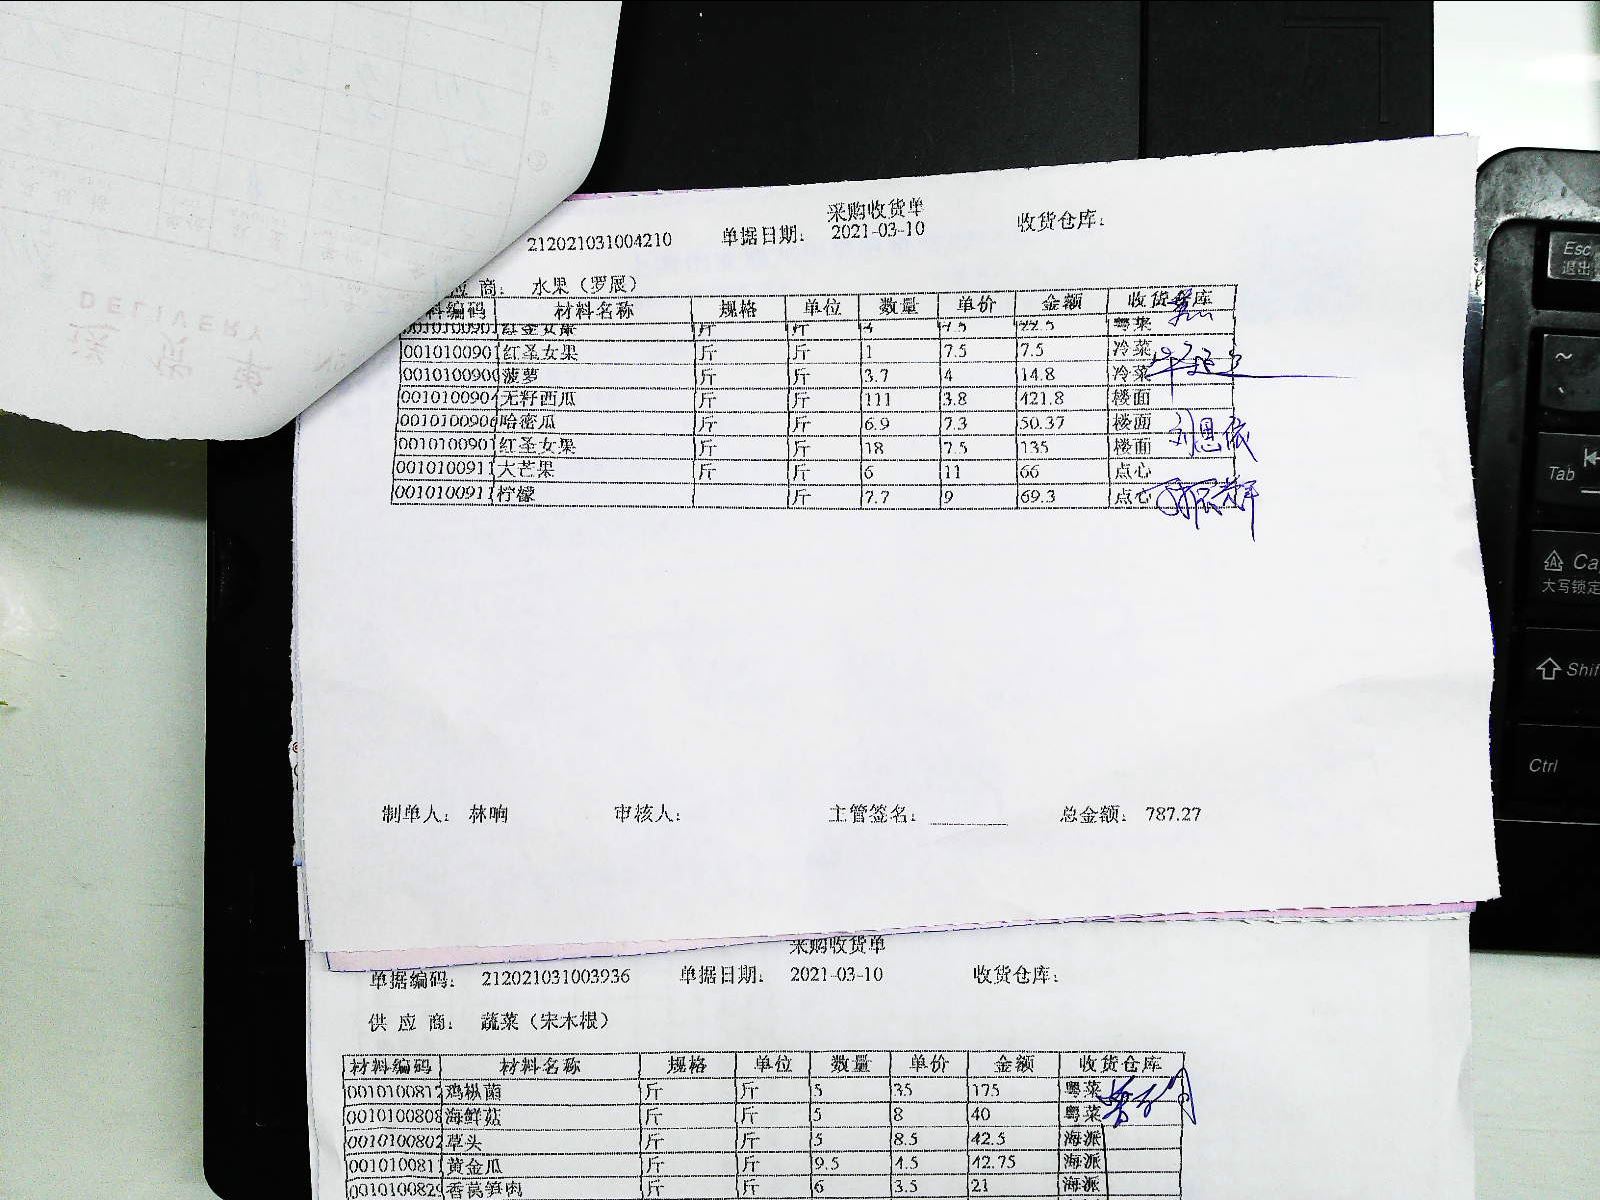 DELIVERY
采购收货单
212021031004210 单据日期: 2021-03-10 收货仓库:
应 商: 水果（罗展）
料编码 材料名称 规格 单位 数量 单价 金额 收货仓库
斤 斤 22.5 粤菜
001010090 红圣女果 斤 斤 1 7.5 7.5 冷菜
001010090 菠萝 斤 斤 3.7 4 14.8 冷菜
001010090 无籽西瓜 斤 斤 111 3.8 421.8 楼面
001010090 哈密瓜 斤 斤 6.9 7.3 50.37 楼面
001010090 红圣女果 斤 斤 18 7.5 135 楼面
001010091 大芒果 斤 斤 6 11 66 点心
001010091 柠檬 斤 7.7 9 69.3 点心
制单人: 林响 审核人: 主管签名: 总金额: 787.27
采购收货单
单据编码: 212021031003936 单据日期: 2021-03-10 收货仓库:
供 应 商: 蔬菜（宋木根）
材料编码 材料名称 规格 单位 数量 单价 金额 收货仓库
001010081 鸡枞菌 斤 斤 5 35 175 粤菜
001010080 海鲜菇 斤 斤 5 8 40 粤菜
001010080 草头 斤 斤 5 8.5 42.5 海派
001010081 黄金瓜 斤 斤 9.5 4.5 42.75 海派
001010082 香莴笋肉 斤 斤 6 3.5 21 海派
Esc
退出
~
Tab
Ca
大写锁定
Shif
Ctrl